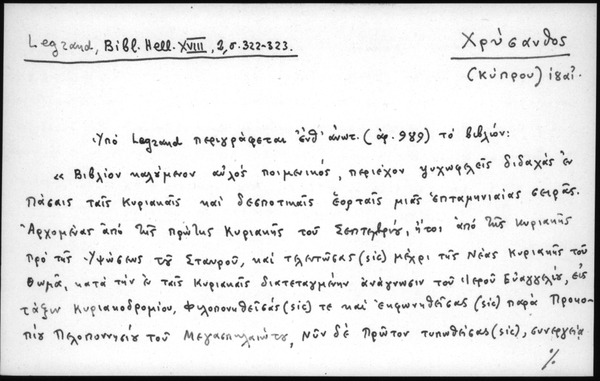 Legrand, Bibl. Hell. XVIII, 2, σ. 322-323.
Χρύσανθος
(Κύπρου) ιδατ.
Ὑπό Legrand περιγράφεται ἐνθ' ἀνωτ. (ἀρ. 989) τό βιβλίον:
« Βιβλίον καλούμενον αὐλός ποιμενικός, περιέχον ψυχωφελεῖς διδαχάς ἐν
Πάσαις ταῖς Κυριακαῖς καί δεσποτικαῖς ἑορταῖς μιᾶς ἑπταμηνιαίας σειρᾶς.
Ἀρχομένας ἀπό τῆς πρώτης Κυριακῆς τοῦ Σεπτεμβρίου, ἤτοι ἀπό τῆς Κυριακῆς
πρό τῆς Ὑψώσεως τοῦ Σταυροῦ, καί τελευτώσας (sic) μέχρι τῆς Νέας Κυριακῆς τοῦ
Θωμᾶ, κατά τήν ἐν ταῖς Κυριακαῖς διατεταγμένην ἀνάγνωσιν τοῦ Ἱεροῦ Εὐαγγελίου, εἰς
τάξιν Κυριακοδρομίου, Φιλοπονηθεῖσάς (sic) τε καί ἐκφωνηθείσας (sic) παρά Προκο-
πίου Πελοποννησίου τοῦ Μεγασπηλαιώτου, Νῦν δέ Πρῶτον τυπωθείσας (sic), συνεργείᾳ
%